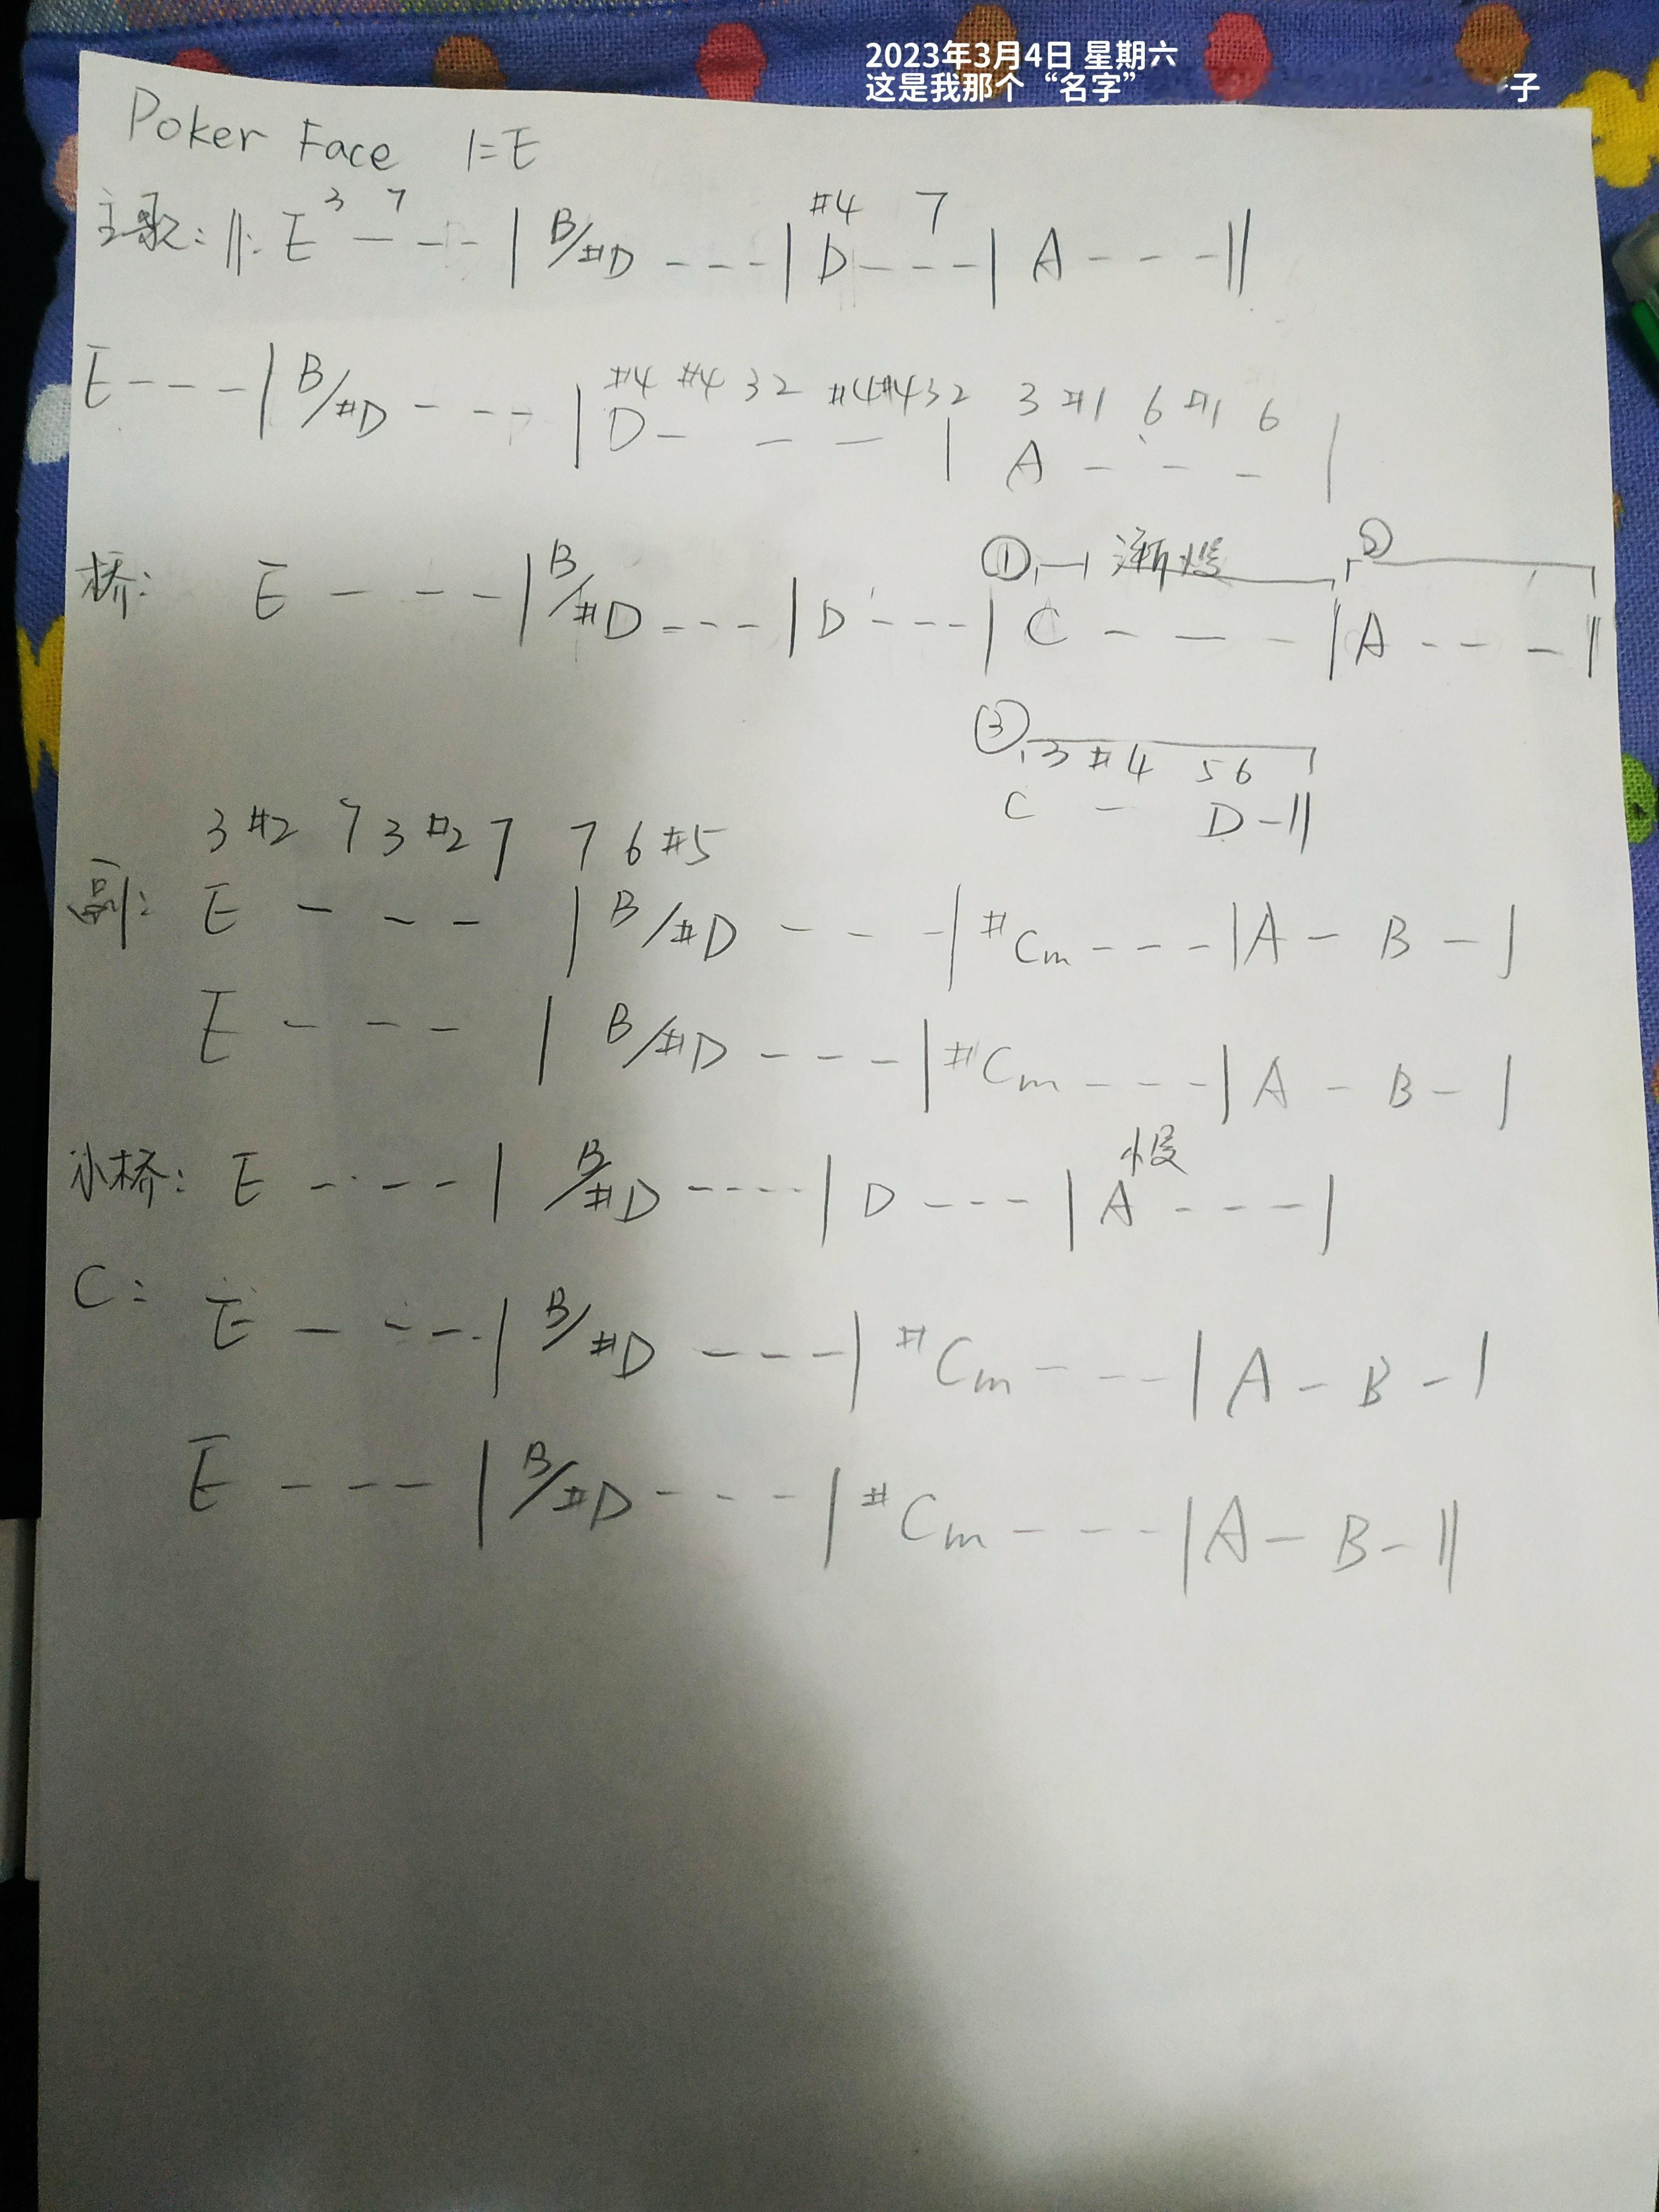 2023年3月4日 星期六
这是我那个“名字”
子
Poker Face 1=E
3 7 #4 7
主歌: ||: E - - - | B/#D - - - | D - - - | A - - - ||
#4 #4 3 2 #4 #4 3 2 3 #1 6 #1 6
E - - - | B/#D - - - | D - - - | A - - - |
① 渐慢 ②
桥: E - - - | B/#D - - - | D - - - | C - - - | A - - - ||
③
3 #4 5 6
C - D - ||
3 #2 7 3 #2 7 7 6 #5
副: E - - - | B/#D - - - | #Cm - - - | A - B - |
E - - - | B/#D - - - | #Cm - - - | A - B - |
慢
小桥: E - - - | B/#D - - - - | D - - - | A - - - |
C: E - - - | B/#D - - - | #Cm - - - | A - B - |
E - - - | B/#D - - - | #Cm - - - | A - B - ||